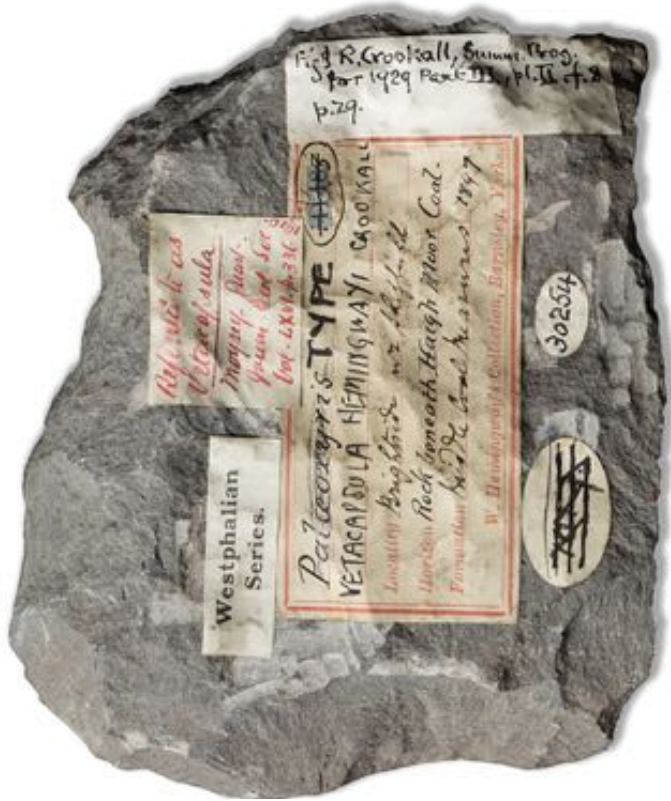 Fig'd R. Crookall, Summ. Prog.
for 1929 Part III, pl. II f. 8
p. 29.
Referred to as
Vetacapsula
Quart.
Vol. LXVI. p. 336
Palaeoxyris TYPE
VETACAPSULA HEMINGWAYI CROOKALL
Locality Brightside nr Sheffield
Horizon Rock beneath Haigh Moor Coal.
Formation Middle Coal Measures 1897
W. Hemingway's Collection, Barnsley,
Westphalian
Series.
30254